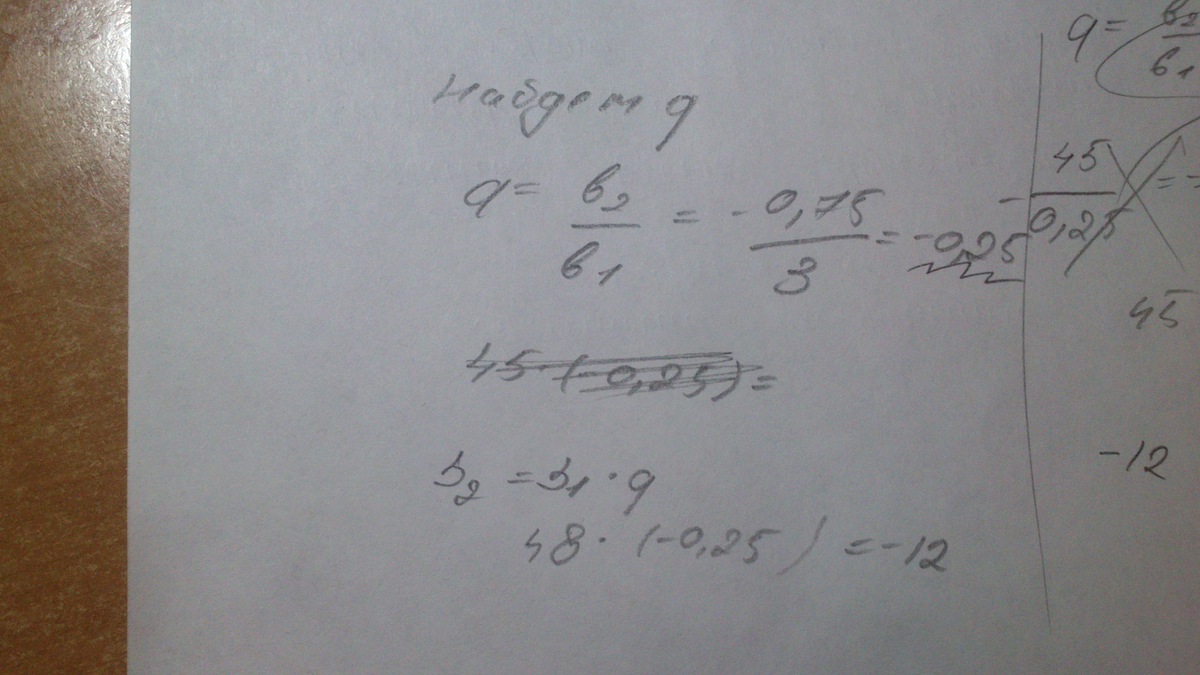 найдем q
q = b₂/b₁ = -0,75/3 = -0,25
45·(-0,25)=
b₂ = b₁ · q
48· (-0,25) = -12
q = b₂/b₁
-45/0,25 = -
45
-12